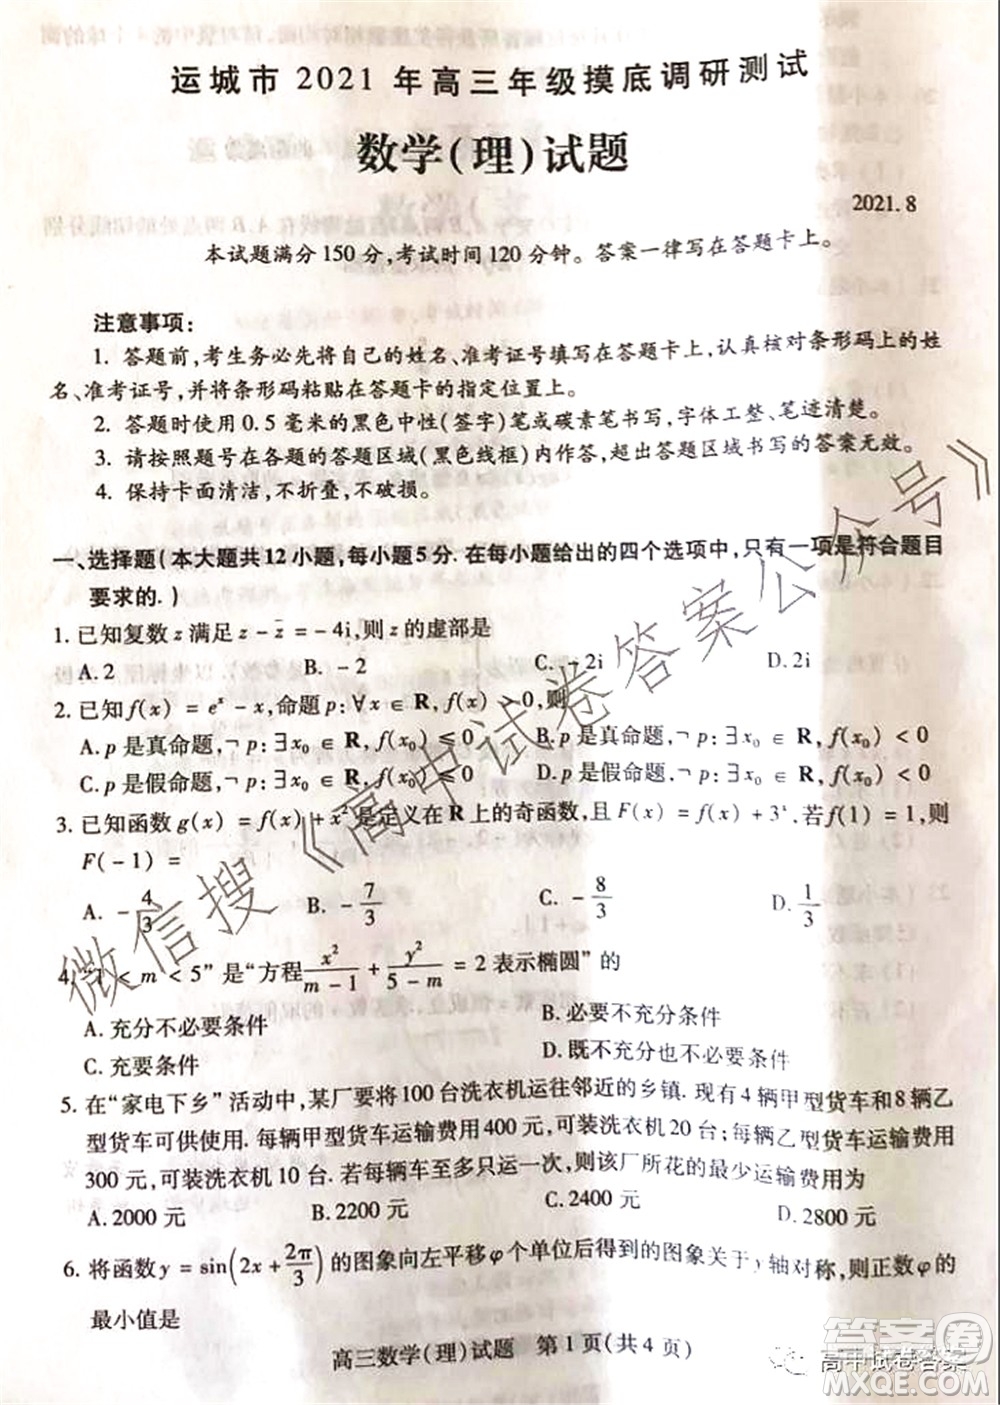 运城市2021年高三年级摸底调研测试
数学(理)试题
2021.8
本试题满分150分,考试时间120分钟。答案一律写在答题卡上。
注意事项:
1. 答题前,考生务必先将自己的姓名、准考证号填写在答题卡上,认真核对条形码上的姓
名、准考证号,并将条形码粘贴在答题卡的指定位置上。
2. 答题时使用0.5毫米的黑色中性(签字)笔或碳素笔书写,字体工整、笔迹清楚。
3. 请按照题号在各题的答题区域(黑色线框)内作答,超出答题区域书写的答案无效。
4. 保持卡面清洁,不折叠,不破损。
一、选择题(本大题共12小题,每小题5分.在每小题给出的四个选项中,只有一项是符合题目
要求的.)
1. 已知复数z满足z-z̄=-4i,则z的虚部是
A. 2 B. -2 C. -2i D. 2i
2. 已知f(x)=eˣ-x,命题p:∀x∈R,f(x)>0,则
A. p是真命题,¬p:∃x₀∈R,f(x₀)≤0 B. p是真命题,¬p:∃x₀∈R,f(x₀)<0
C. p是假命题,¬p:∃x₀∈R,f(x₀)≤0 D. p是假命题,¬p:∃x₀∈R,f(x₀)<0
3. 已知函数g(x)=f(x)+x²是定义在R上的奇函数,且F(x)=f(x)+3ˣ.若f(1)=1,则
F(-1)=
A. -4/3 B. -7/3 C. -8/3 D. 1/3
4. “1<m<5”是“方程x²/(m-1)+y²/(5-m)=2表示椭圆”的
A. 充分不必要条件 B. 必要不充分条件
C. 充要条件 D. 既不充分也不必要条件
5. 在“家电下乡”活动中,某厂要将100台洗衣机运往邻近的乡镇.现有4辆甲型货车和8辆乙
型货车可供使用.每辆甲型货车运输费用400元,可装洗衣机20台;每辆乙型货车运输费用
300元,可装洗衣机10台.若每辆车至多只运一次,则该厂所花的最少运输费用为
A. 2000元 B. 2200元 C. 2400元 D. 2800元
6. 将函数y=sin(2x+2π/3)的图象向左平移φ个单位后得到的图象关于y轴对称,则正数φ的
最小值是
高三数学(理)试题 第1页(共4页)
微信搜《高中试卷答案公众号》
高中试卷答案
答案圈
MXQE.COM